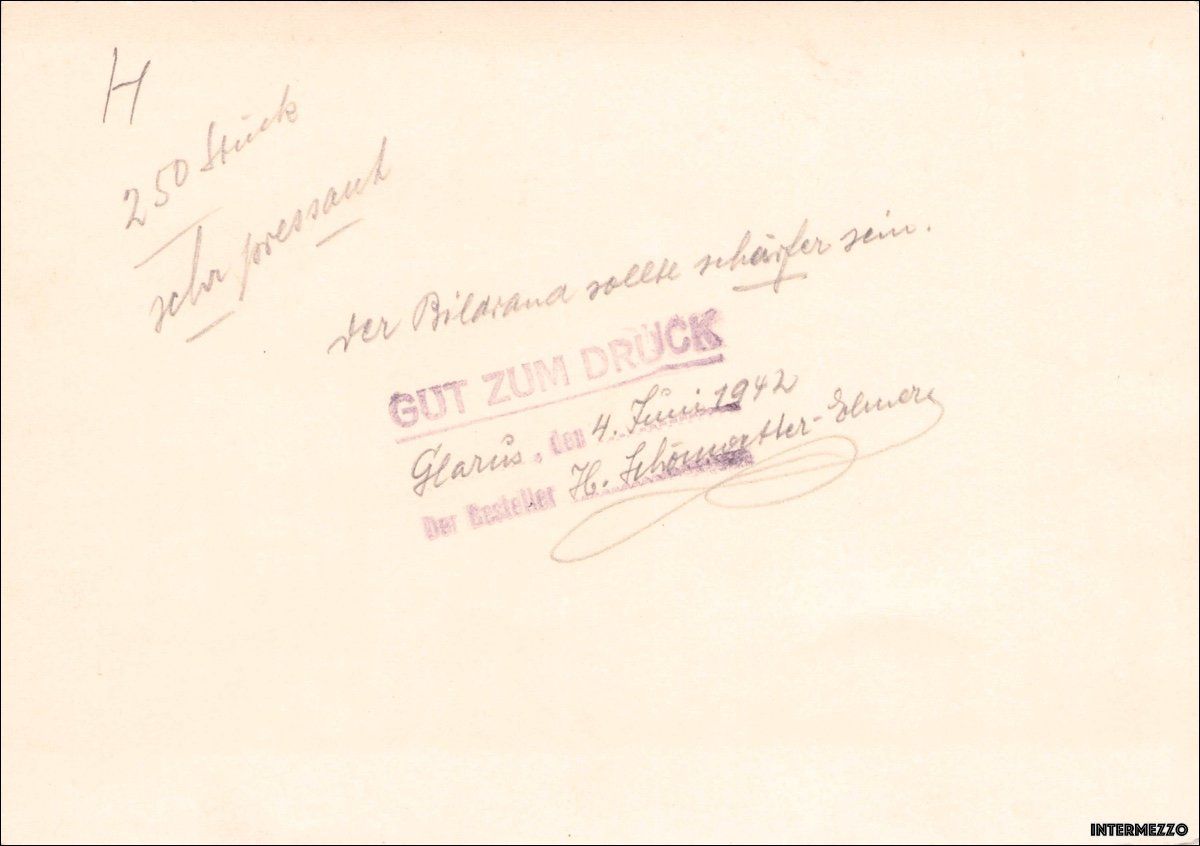 H
250 Stück
sehr pressant
Der Bildrand sollte schärfer sein.
GUT ZUM DRUCK
Glarus, den 4. Juni 1942
Der Besteller H. Schönwetter-Elmer
INTERMEZZO